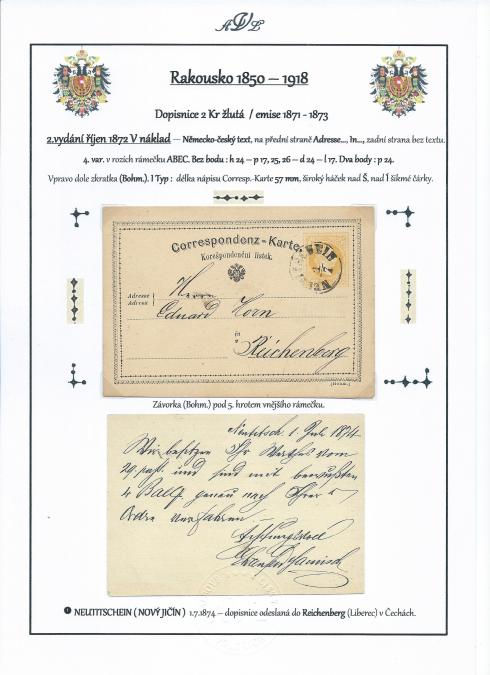 AVL
Rakousko 1850 – 1918
Dopisnice 2 Kr žlutá / emise 1871 - 1873
2.vydání říjen 1872 V náklad – Německo-český text, na přední straně Adresse..., In..., zadní strana bez textu.
4. var. v rozích rámečku ABEC. Bez bodu : h 24 – p 17, 25, 26 – d 24 – l 17. Dva body : p 24.
Vpravo dole zkratka (Bohm.). I Typ : délka nápisu Corresp.-Karte 57 mm, široký háček nad Š, nad Í šikmé čárky.
Correspondenz-Karte.
Korešpondenční lístek.
Adresse
Adresa
Herrn
Eduard Horn
in
Reichenberg
(Böhm.)
Závorka (Bohm.) pod 5. hrotem vnějšího rámečku.
Neutitsch. 1. Juli 1874
Wir besitzen Ihr Werthes vom
29. pass. und sind mit bewußten
4 Ball. genau nach Ihrer
Ordre verfahren.
Achtungsvoll
NEUTITSCHEIN ( NOVÝ JIČÍN ) 1.7.1874 – dopisnice odeslaná do Reichenberg (Liberec) v Čechách.